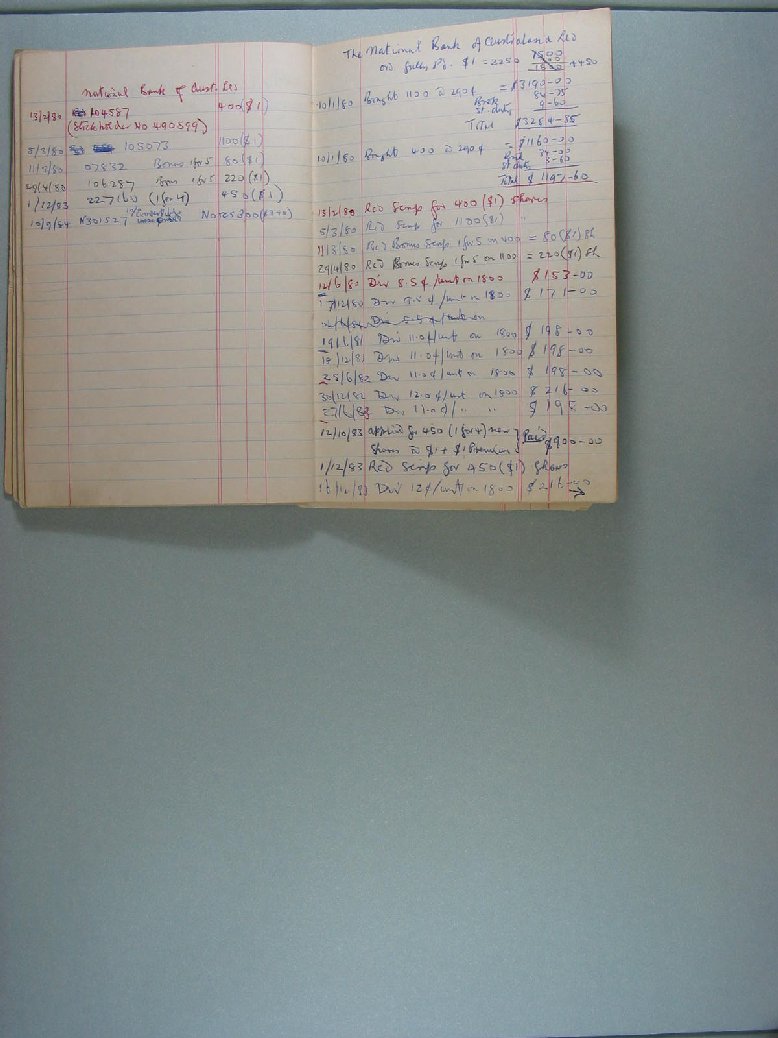 National Bank of Aust. Ltd
13/2/80 104587 400($1)
(Stockholder No 490599)
5/3/80 105073 1100($1)
11/3/80 07832 Bonus 1 for 5 80($1)
29/4/80 106287 Bonus 1 for 5 220($1)
1/12/83 227160 (1 for 4) 450($1)
10/9/84 N301527
The National Bank of Australasia Ltd
ord fully Pd. $1 = 2250
10/1/80 Bought 1100 @ 290¢ = $3190-00
Brok 84-75
St. duty 9-60
Total $3284-35
10/1/80 Bought 400 @ 290¢ = $1160-00
Brok
St duty 3-60
Total $1197-60
13/2/80 Rec'd Scrip for 400($1) shares
5/3/80 Rec'd Scrip for 1100($1) "
11/3/80 Rec'd Bonus Scrip 1 for 5 on 400 = 80($1) Sh
29/4/80 Rec'd Bonus Scrip 1 for 5 on 1100 = 220($1) Sh
12/6/80 Div 8.5¢/unit on 1800 $153-00
/12/80 Div 9.5¢/unit on 1800 $171-00
Div 5.5¢/unit on
19/6/81 Div 11.0¢/unit on 1800 $198-00
18/12/81 Div 11.0¢/unit on 1800 $198-00
25/6/82 Div 11.0¢/unit on 1800 $198-00
30/12/82 Div 12.0¢/unit on 1800 $216-00
27/6/83 Div 11.0¢/" " $198-00
12/10/83 applied for 450 (1 for 4) new
Shares @ $1 + $1 Premium } Paid $900-00
1/12/83 Rec'd Scrip for 450($1) shares
16/12/83 Div 12¢/unit on 1800 $216-00